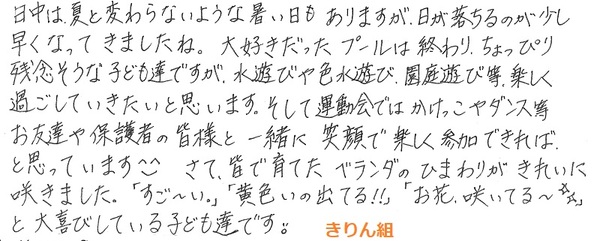 日中は、夏と変わらないような暑い日もありますが、日が落ちるのが少し
早くなってきましたね。大好きだったプールは終わり、ちょっぴり
残念そうな子ども達ですが、水遊びや色水遊び、園庭遊び等、楽しく
過ごしていきたいと思います。そして運動会ではかけっこやダンス等
お友達や保護者の皆様と一緒に笑顔で楽しく参加できれば、
と思っています さて、皆で育てたベランダのひまわりがきれいに
咲きました。「すご〜い。」「黄色いの出てる!!」「お花、咲いてる〜☆☆」
と大喜びしている子ども達です。
きりん組